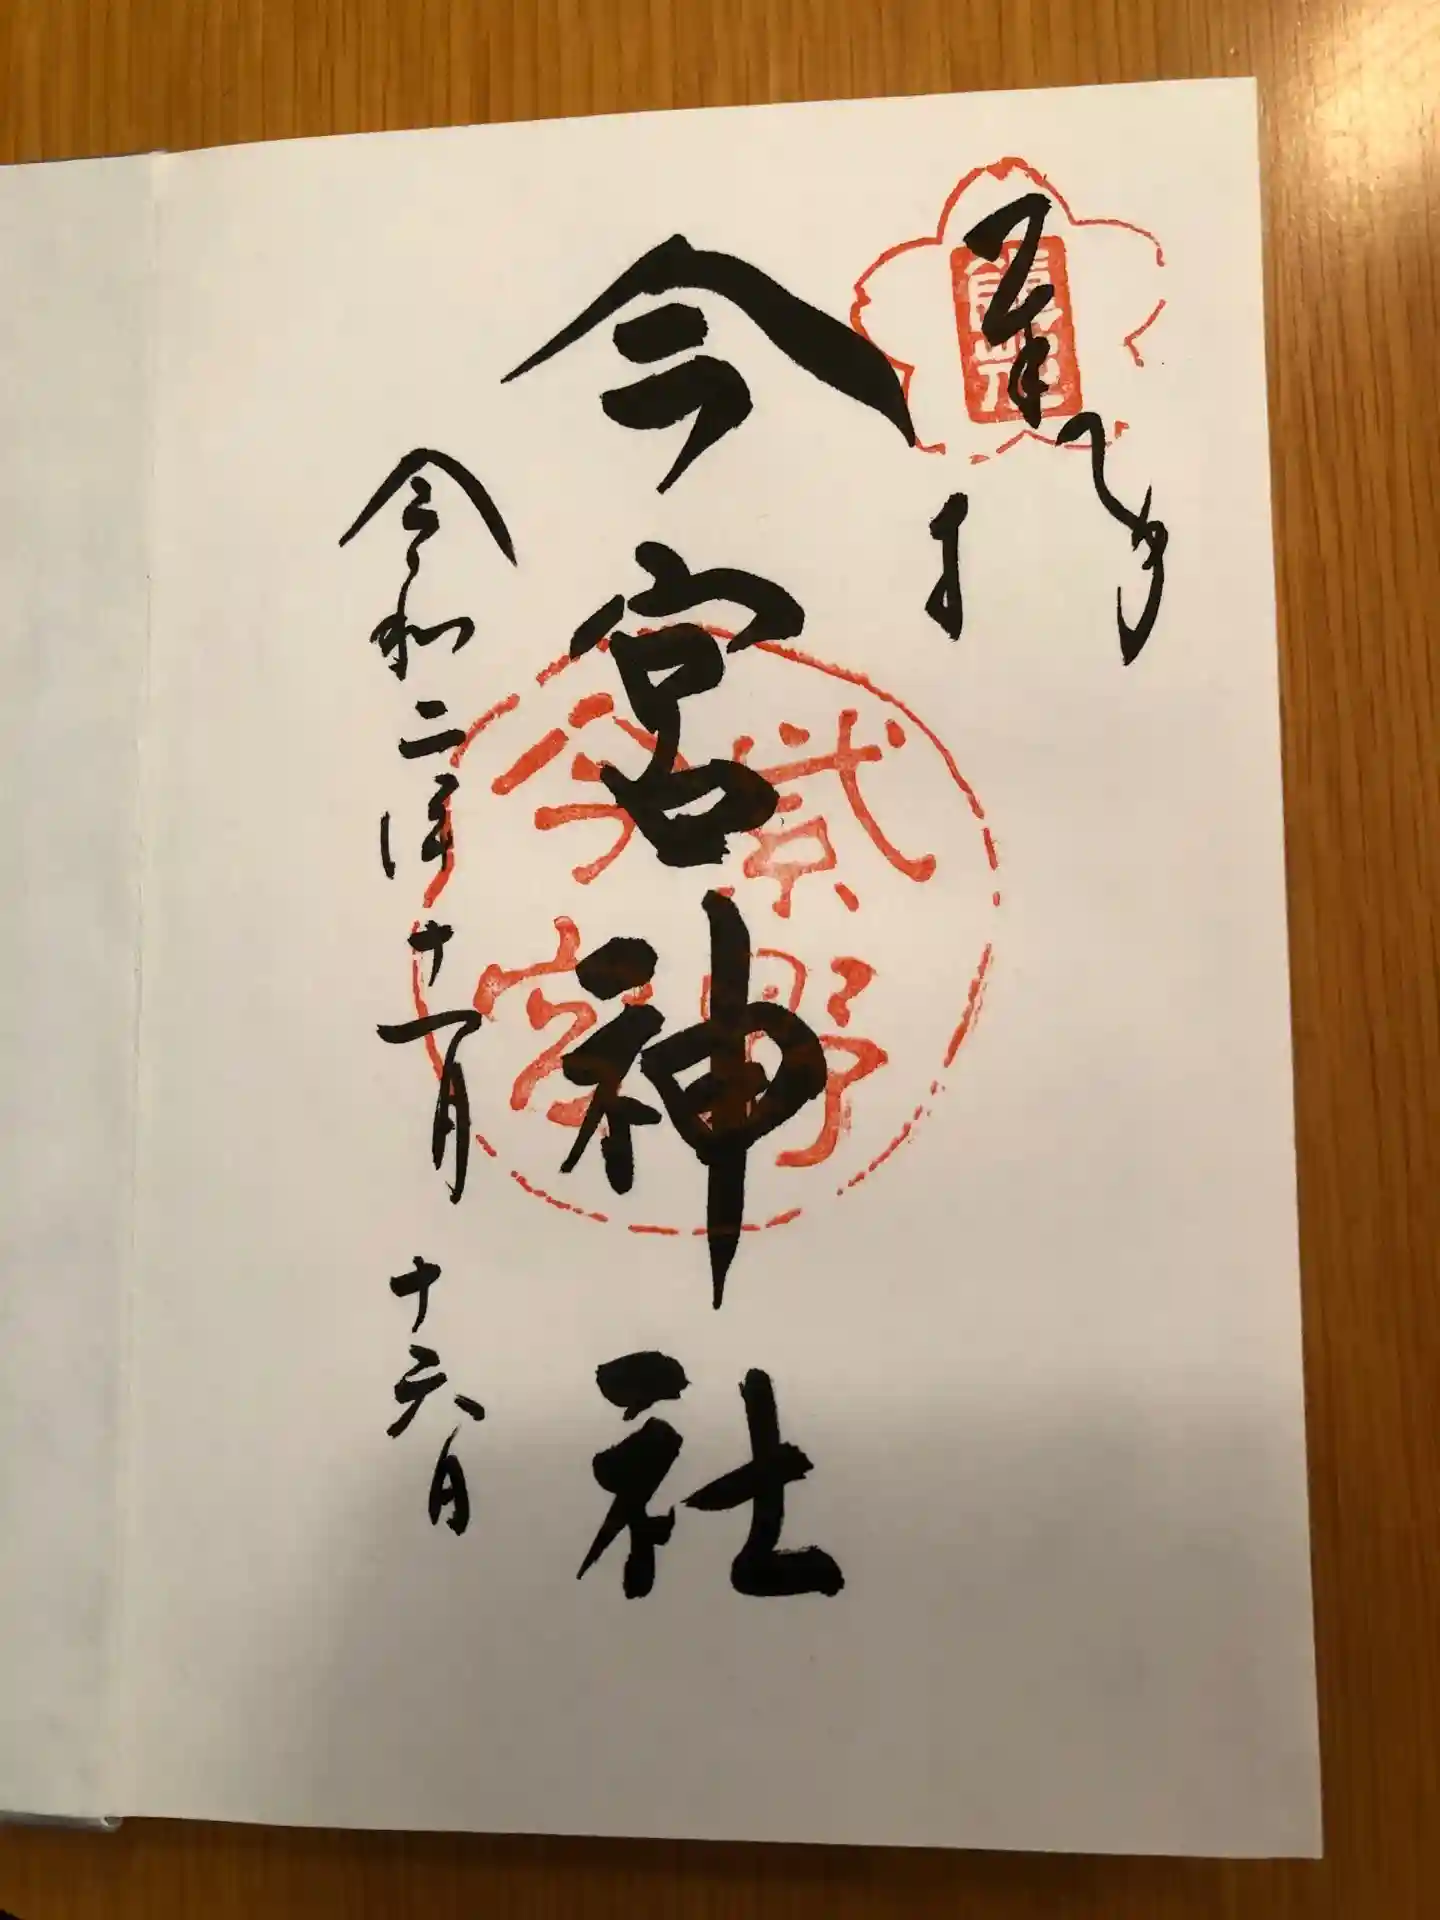 奉拝
今宮神社
紫野
今宮
令和二年十一月十六日